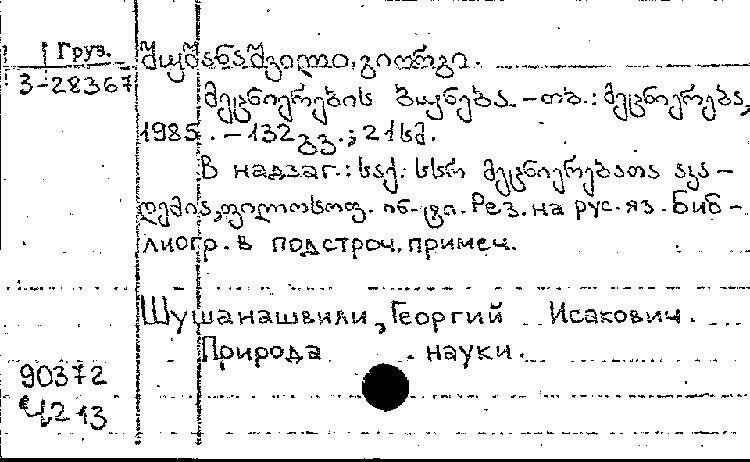 Груз. შუშანაშვილი, გიორგი.
3-28367
მეცნიერების ბუნება. - თბ.: მეცნიერება,
1985. - 132 გვ.; 21 სმ.
В надзаг.: საქ. სსრ მეცნიერებათა აკა-
დემია, ფილოსოფ. ინ-ტი. Рез. на рус. яз. Биб-
лиогр. в подстроч. примеч.
Шушанашвили, Георгий Исакович.
Природа науки.
90372
213